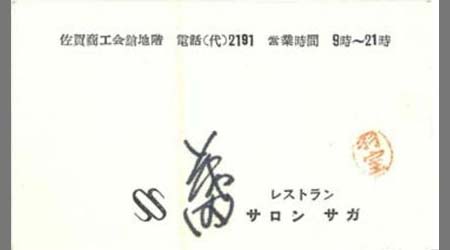 佐賀商工会館地階 電話(代)2191 営業時間 9時~21時
レストラン
サロン サガ